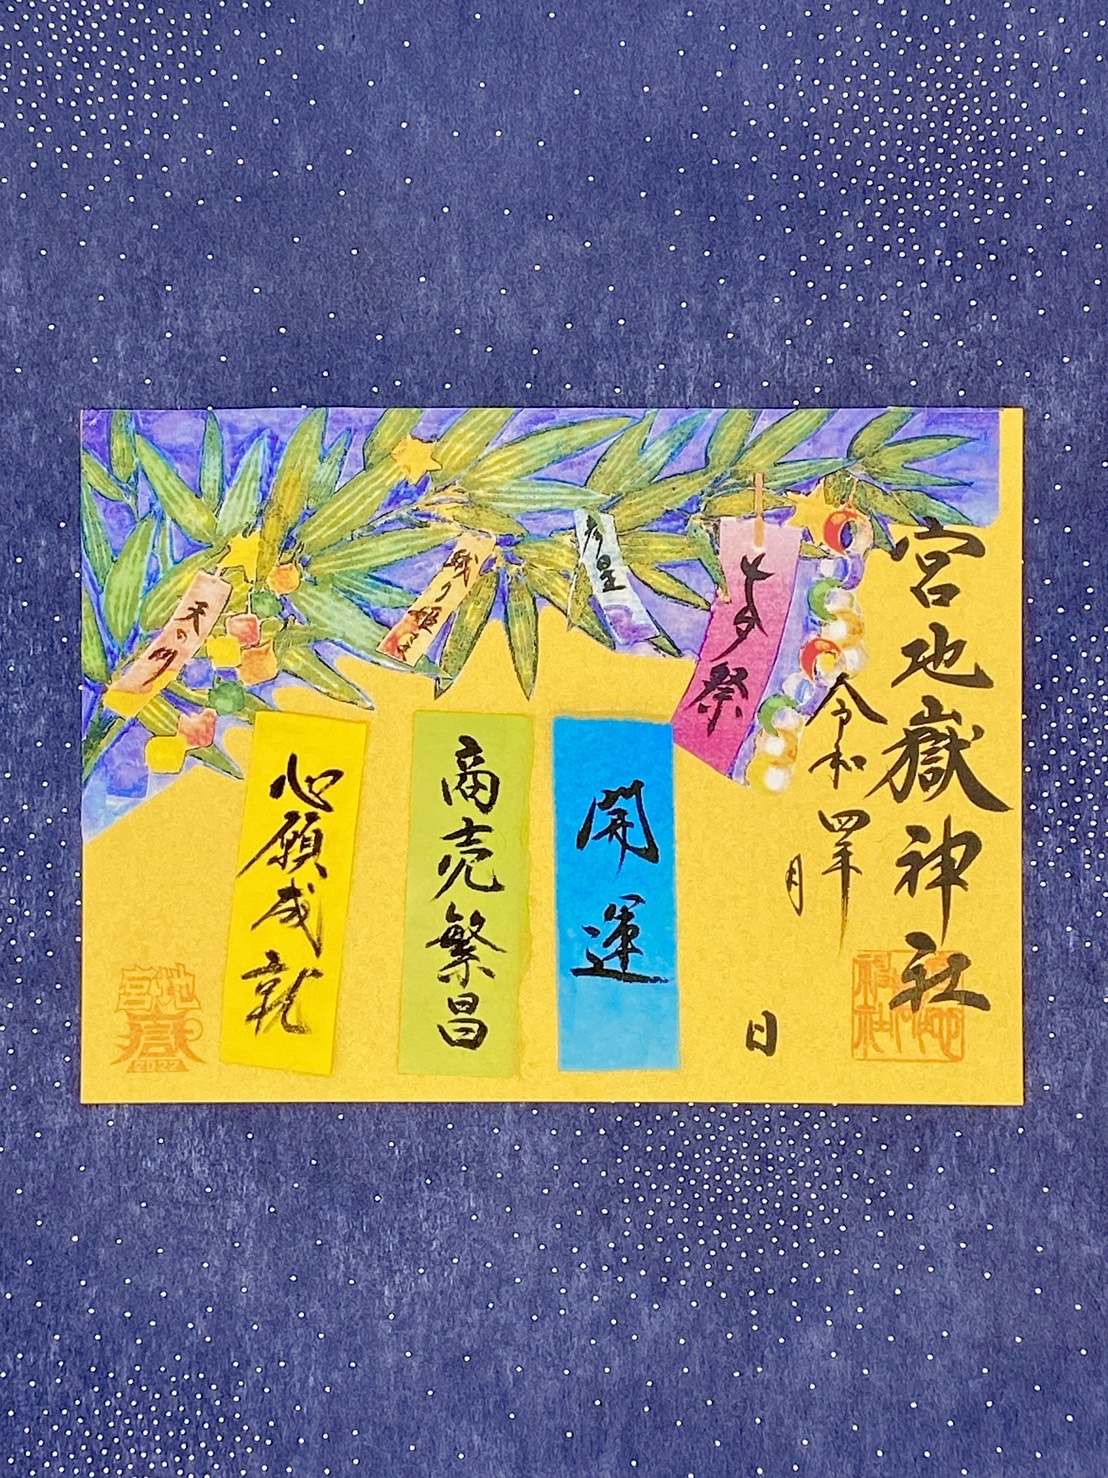 宮地嶽神社
令和四年
月
日
七夕祭
彦星
織り姫
天の川
開運
商売繁昌
心願成就
宮地
嶽
2022